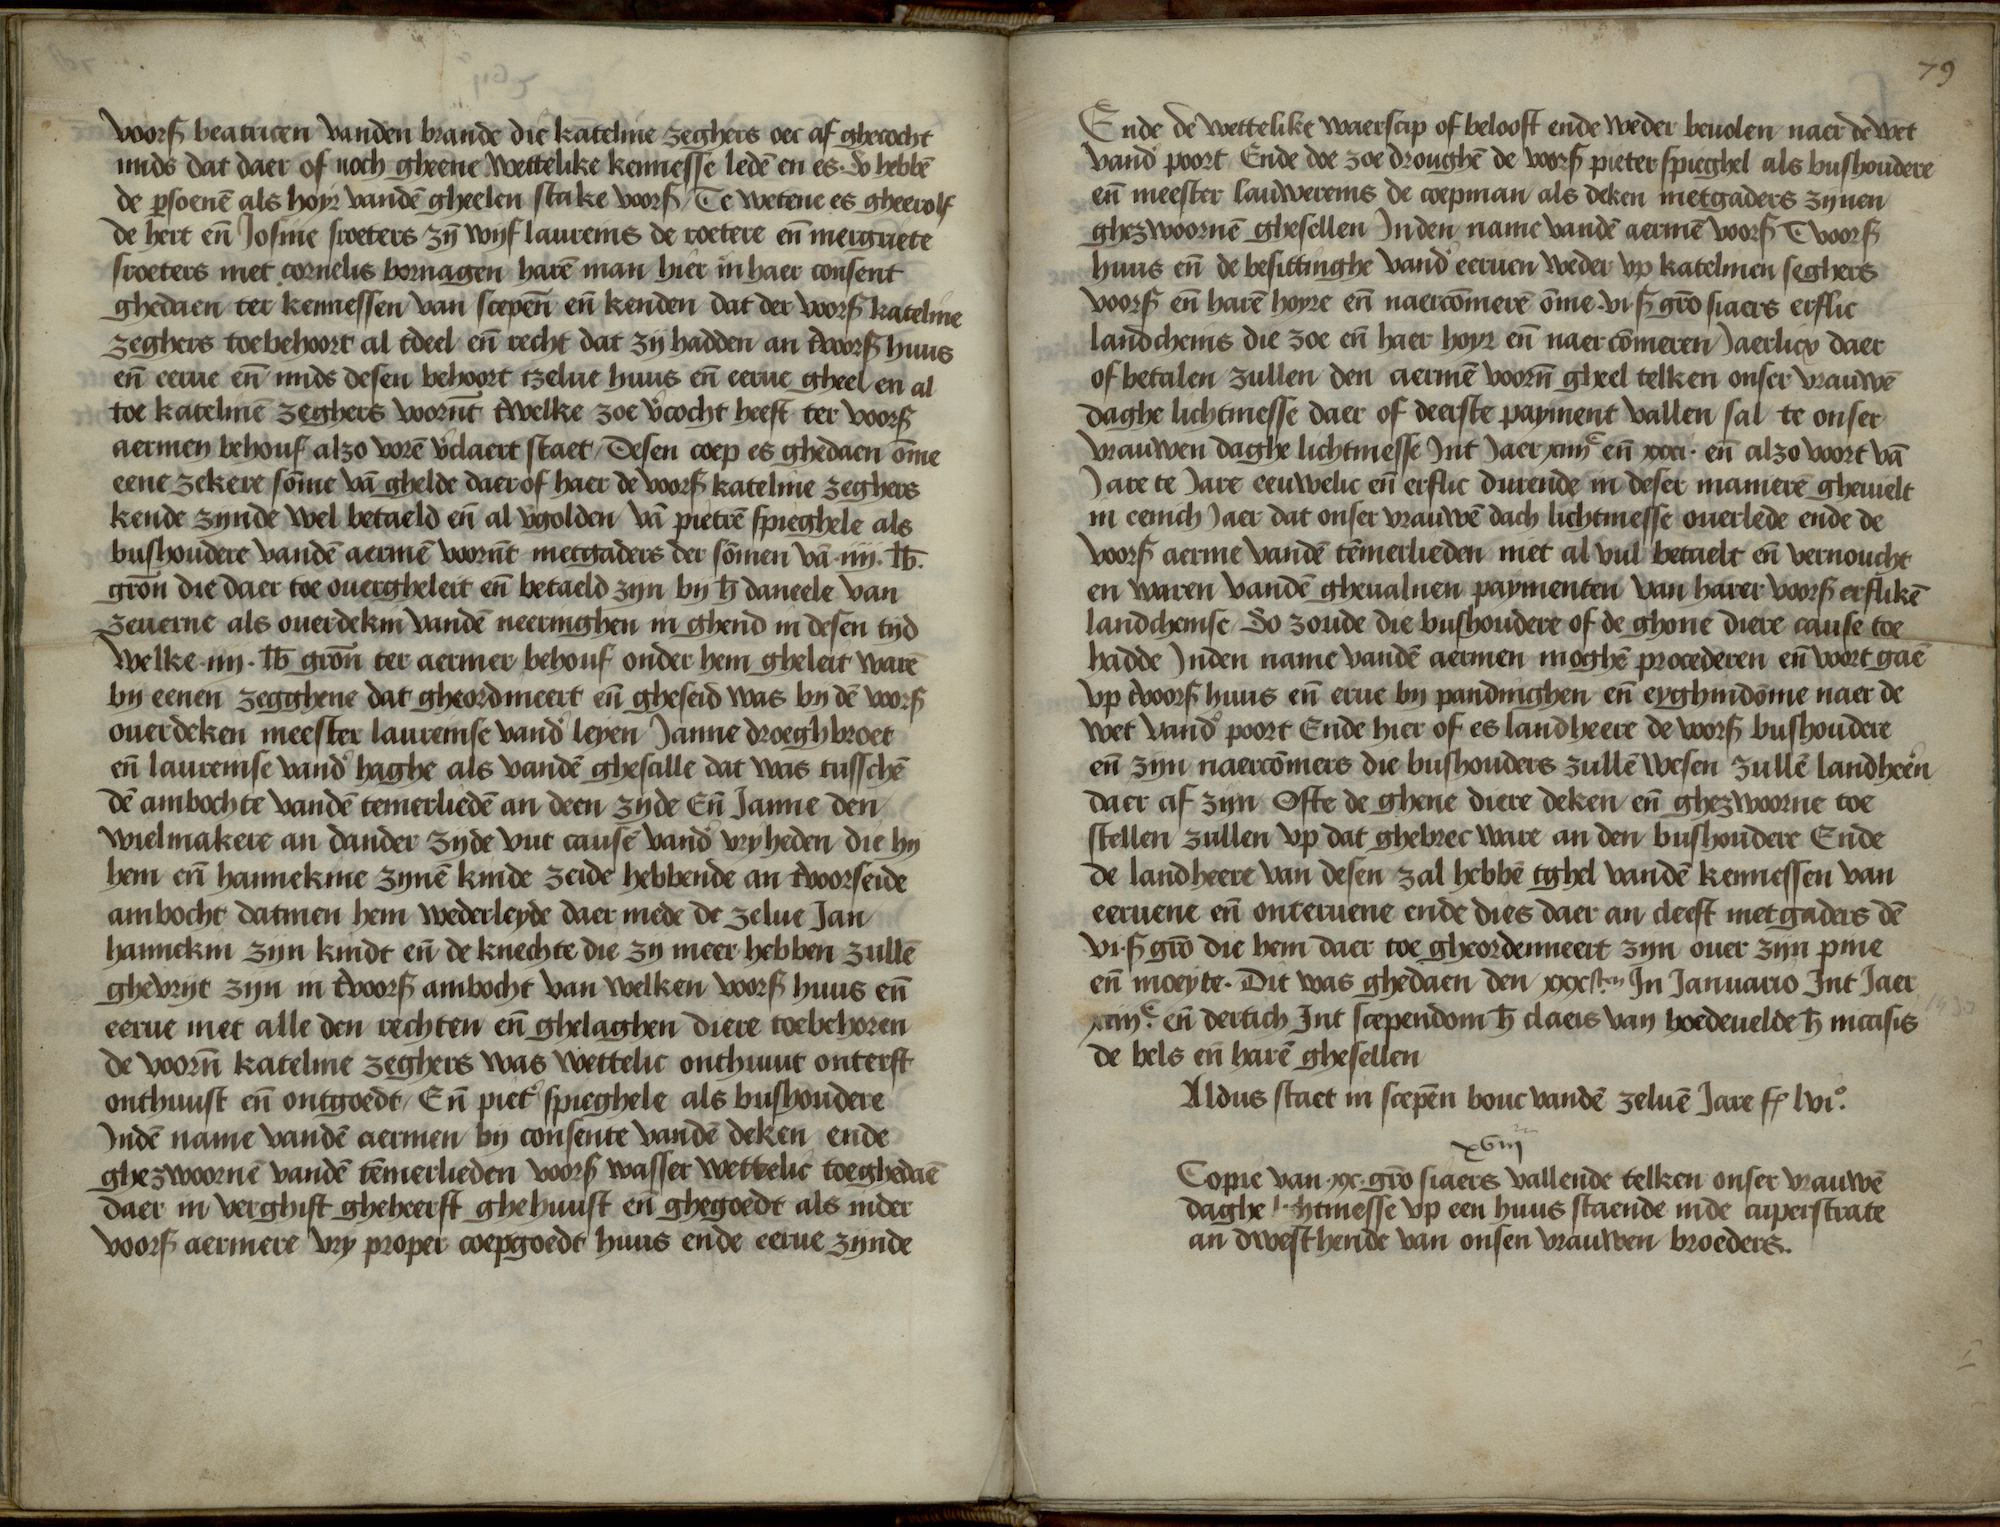 voors̄ beatricen vanden brande die kateline zeghers oec af ghecocht
mids dat daer of noch gheene wettelike kennesse ledē en es. So hebbē
de p̱soenē als hoyr vandē gheelen stake voors̄ / Te wetene es gheerolf
de hert en̄ Josine sroeters zȳ wijf laureins de roetere en̄ mergriete
sroeters met cornelis bornagen harē man hier in haer consent
ghedaen ter kennessen van scepen̄ en̄ kenden dat der voors̄ kateline
zeghers toebehoort al tdeel en̄ recht dat zij hadden an tvoors̄ huus
en̄ eerue en̄ mids desen behoort tzelue huus en̄ eerue gheel en al
toe katelinē zeghers voorn̄t twelke zoe v̓cocht heeft ter voors̄
aermen behouf alzo vorē v̓claert staet / Desen coep es ghedaen ōme
eene zekere sōme vā ghelde daer of haer de voors̄ kateline zeghers
kende zynde wel betaeld en̄ al v̓golden vā pietrē spieghele als
bushoudere vandē aermē voorn̄t metgaders der sōmen vā .iiij. lb̄.
gron̄ die daer toe ouergheleit en̄ betaeld zijn by h̄ daneele van
zeuerne als ouerdekin vanden neeringhen in ghend in desen tijd
welke .iiij. lb̄ gron̄ ter aermer behouf onder hem gheleit warē
bij eenen zegghene dat gheordineert en̄ gheseid was bij dē voors̄
ouerdeken meester laureinse vand̓ leyen Janne droeghbroet
en̄ laureinse vand̓ haghe als vandē ghescille dat was tusschē
dē ambochte vandē temerliedē an deen zijde En̄ Janne den
wielmakere an dander zijde vut causē vand̓ vryheden die hij
hem en̄ hannekine zynē kinde zeide hebbende an tvoorseide
ambocht datmen hem wederleyde daer mede de zelue Jan
hannekin zijn kindt en̄ de knechte die zij meer hebben zullē
ghevrijt zijn in tvoors̄ ambocht van welken voors̄ huus en̄
eerue met alle den rechten en̄ ghelaghen diere toebehoren
de voorn̄ kateline zeghers was wettelic onthuut onterft
onthuust en̄ ontgoedt / En̄ piet̓ spieghele als bushoudere
Indē name vandē aermen bij consente vandē deken ende
ghezwoornē vandē tēmerlieden voors̄ wasser wettelic toeghedaē
daer in verghift gheheerft ghehuust en̄ ghegoedt als inder
voors̄ aermere vry proper coepgoedt huus ende eerue zijnde
79
Ende de wettelike waerscip of belooft ende weder beuolen naer de wet
vand̓ poort Ende doe zoe droughē de voors̄ pieter spieghel als bushoudere
en̄ meester lauwereins de coepman als deken metgaders zijnen
ghezwoornē ghesellen Inden name vandē aermē voors̄ Tvoors̄
huus en̄ de besittinghe vand̓ eeruen weder vp katelinen seghers
voors̄ en̄ harē hoyre en̄ naercōmerē ōme .vi. s̄ grō siaers erflic
landcheins die zoe en̄ haer hoyr en̄ naercōmeren Jaerlicx daer
of betalen zullen den aermē voorn̄ gheel telken onser vrauwē
daghe lichtmesse daer of deerste payment vallen sal te onser
vrauwen daghe lichtmesse Int Jaer xiiijᶜ en̄ xxxi. en̄ alzo voort vā
Jare te Jare eeuwelic en̄ erflic durende in deser manierē gheuielt
in eenich Jaer dat onser vrauwē dach lichtmesse ouerlede ende de
voors̄ aerme vandē tēmerlieden niet al vul betaelt en̄ vernoucht
en waren vandē gheualnen paymenten van harer voors̄ erflikē
landcheinse So zoude die bushoudere of de ghone diere cause toe
hadde Inden name vandē aermen moghē procederen en̄ voort gaē
vp tvoors̄ huus en̄ erue bij pandinghen en̄ eyghindōme naer de
wet vand̓ poort Ende hier of es landheere de voors̄ bushoudere
en̄ zijn naercōmers die bushouders zullē wesen zullē landheer̄n
daer af zijn Ofte de ghene diere deken en̄ ghezwoorne toe
stellen zullen vp dat ghebrec ware an den bushoudere Ende
de landheere van desen zal hebbē tghel vandē kennessen van
eeruene en̄ onteruene ende dies daer an cleeft metgaders dē
vi. s̄ grō die hem daer toe gheordenneert zijn ouer zijn pine
en̄ moeyte. Dit was ghedaen den xxxsten In Januario Int Jaer
xiiijᶜ. en̄ dertich Int scependom h̄ claeis van hoedeuelde h̄ niccasis
de bels en̄ harē ghesellen
Aldus staet in scepēn bouc vandē zeluē Jare fᵒ lvi°.
xviij
Copie van .xx. grō siaers vallende telken onser vrauwē
daghe lichtmesse vp een huus staende inde cuperstrate
an dwesthende van onsen vrauwen broeders.